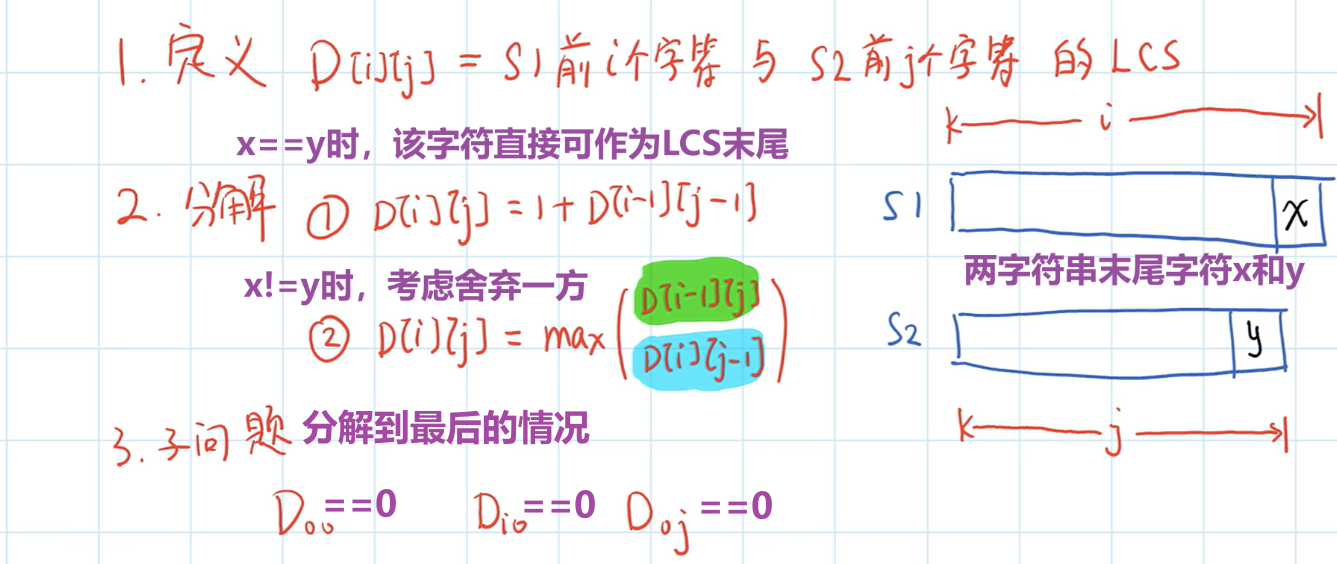 1. 定义 D[i][j] = S1前i个字符 与 S2前j个字符 的LCS
x==y时，该字符直接可作为LCS末尾
2. 分解 ① D[i][j] = 1 + D[i-1][j-1]
x!=y时，考虑舍弃一方
② D[i][j] = max ( D[i-1][j]
D[i][j-1] )
3. 子问题 分解到最后的情况
D₀₀==0 Dᵢ₀==0 D₀ⱼ==0
i
S1 x
两字符串末尾字符x和y
S2 y
j